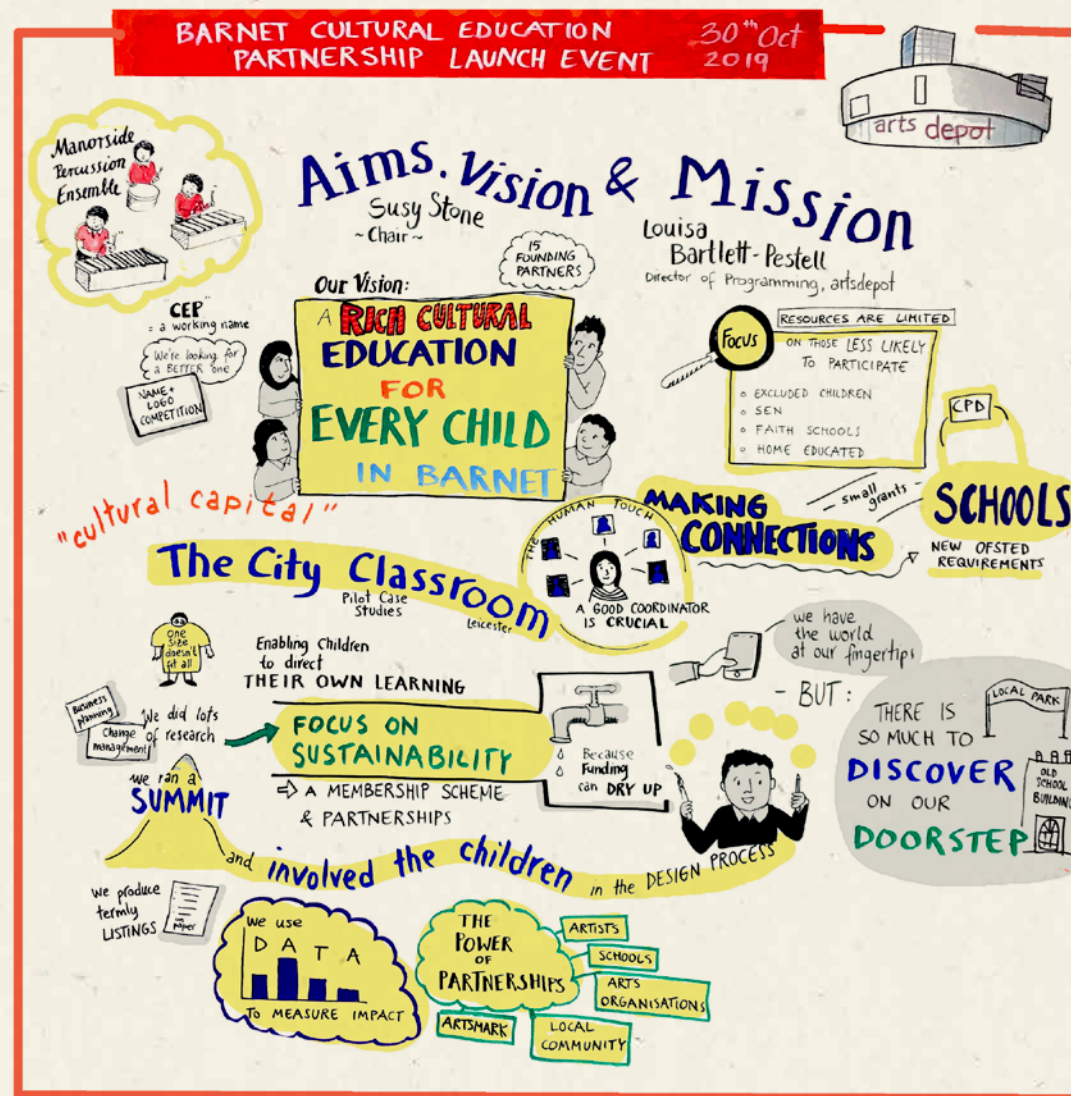 BARNET CULTURAL EDUCATION
PARTNERSHIP LAUNCH EVENT
30th Oct
2019
arts depot
Manorside
Percussion
Ensemble
Aims, Vision & Mission
Susy Stone
~ Chair ~
Louisa
Bartlett-Pestell
Director of Programming, artsdepot
15
FOUNDING
PARTNERS
Our Vision:
A RICH CULTURAL
EDUCATION
FOR
EVERY CHILD
IN BARNET
"CEP"
= a working name
We're looking for
a BETTER one
NAME +
LOGO
COMPETITION
RESOURCES ARE LIMITED
Focus
ON THOSE LESS LIKELY
TO PARTICIPATE
EXCLUDED CHILDREN
SEN
FAITH SCHOOLS
HOME EDUCATED
CPD
- small
grants -
SCHOOLS
NEW OFSTED
REQUIREMENTS
MAKING
CONNECTIONS
THE HUMAN TOUCH
A GOOD COORDINATOR
IS CRUCIAL
"cultural capital"
The City Classroom
Pilot Case
Studies
Leicester
One
size
doesn't
fit all
Enabling Children
to direct
THEIR OWN LEARNING
Business
planning
Change
management
We did lots
of research
FOCUS ON
SUSTAINABILITY
⇨ A MEMBERSHIP SCHEME
& PARTNERSHIPS
Because
Funding
can DRY UP
we have
the world
at our fingertips
- BUT:
THERE IS
SO MUCH TO
DISCOVER
ON OUR
DOORSTEP
LOCAL PARK
OLD
SCHOOL
BUILDING
we ran a
SUMMIT
and involved the children in the DESIGN PROCESS
we produce
termly
LISTINGS
paper
We use
DATA
To MEASURE IMPACT
THE
POWER
OF
PARTNERSHIPS
ARTISTS
SCHOOLS
ARTS
ORGANISATIONS
LOCAL
COMMUNITY
ARTSMARK